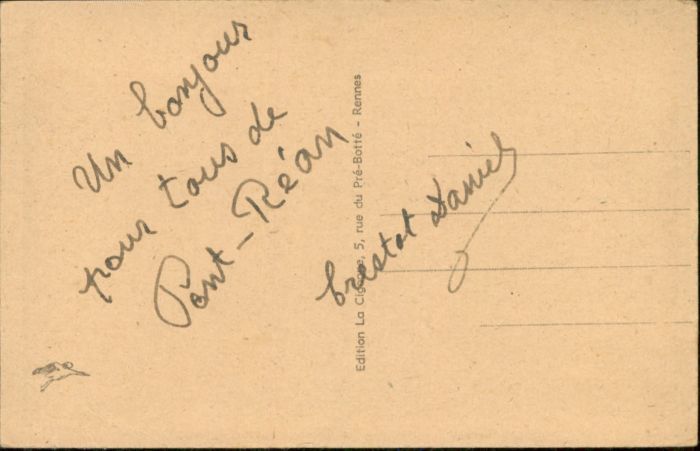 Un bonjour
pour tous de
Pont-Réan
Crestot Daniel
Edition La Cigogne, 5, rue du Pré-Botté - Rennes